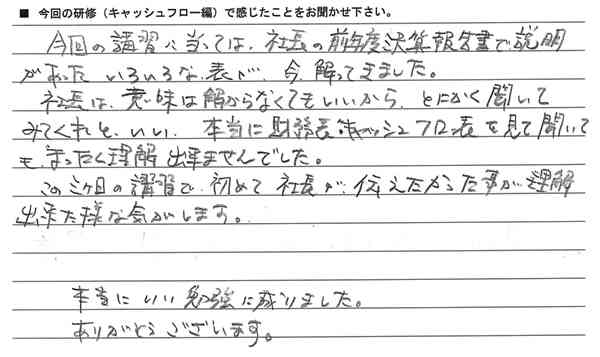 ■ 今回の研修（キャッシュフロー編）で感じたことをお聞かせ下さい。
今回の講習に当っては、社長の前年度決算報告書で説明
があった いろいろな表が、今、解ってきました。
社長は、意味は解からなくてもいいから、とにかく聞いて
みてくれと、いい、本当に財務表、キャッシュフロー表を見て聞いて
も、まったく理解出来ませんでした。
この三ヶ月の講習で、初めて社長が、伝えたかった事が理解
出来た様な気がします。
本当にいい勉強に成りました。
ありがとうございます。